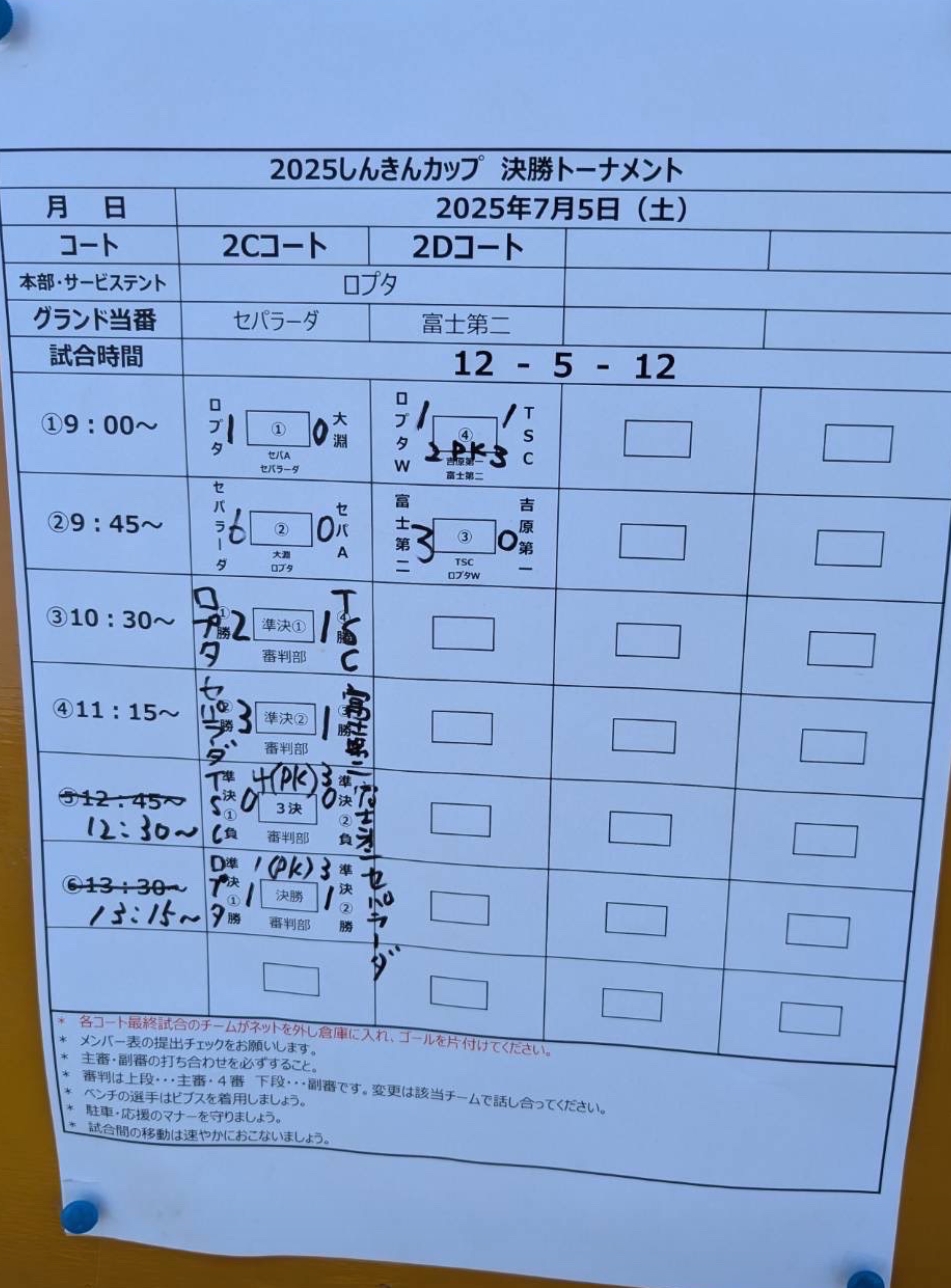 2025しんきんカップ 決勝トーナメント
月 日 2025年7月5日（土）
コート 2Cコート 2Dコート
本部・サービステント ロプタ
グランド当番 セパラーダ 富士第二
試合時間 12 - 5 - 12
①9：00～ ロプタ 1 ① 0 大淵 ロプタW 1 ④ 1 TSC
セパA 2 PK 3 吉原第一
セパラーダ 富士第二
②9：45～ セパラーダ 6 ② 0 セパA 富士第二 3 ③ 0 吉原第一
大淵 TSC
ロプタ ロプタW
③10：30～ ロプタ ①勝 2 準決① 1 ④勝 TSC
審判部
④11：15～ セパラーダ ②勝 3 準決② 1 ③勝 富士第二
審判部
⑤12：45～ TSC 準決①負 4(PK)3 準決②負 富士第二
12:30～ 0 3決 0
審判部
⑥13：30～ ロプタ 準決①勝 1(PK)3 準決②勝 セパラーダ
13:15～ 1 決勝 1
審判部
* 各コート最終試合のチームがネットを外し倉庫に入れ、ゴールを片付けてください。
* メンバー表の提出チェックをお願いします。
* 主審・副審の打ち合わせを必ずすること。
* 審判は上段・・・主審・4審 下段・・・副審です。変更は該当チームで話し合ってください。
* ベンチの選手はビブスを着用しましょう。
* 駐車・応援のマナーを守りましょう。
* 試合間の移動は速やかにおこないましょう。